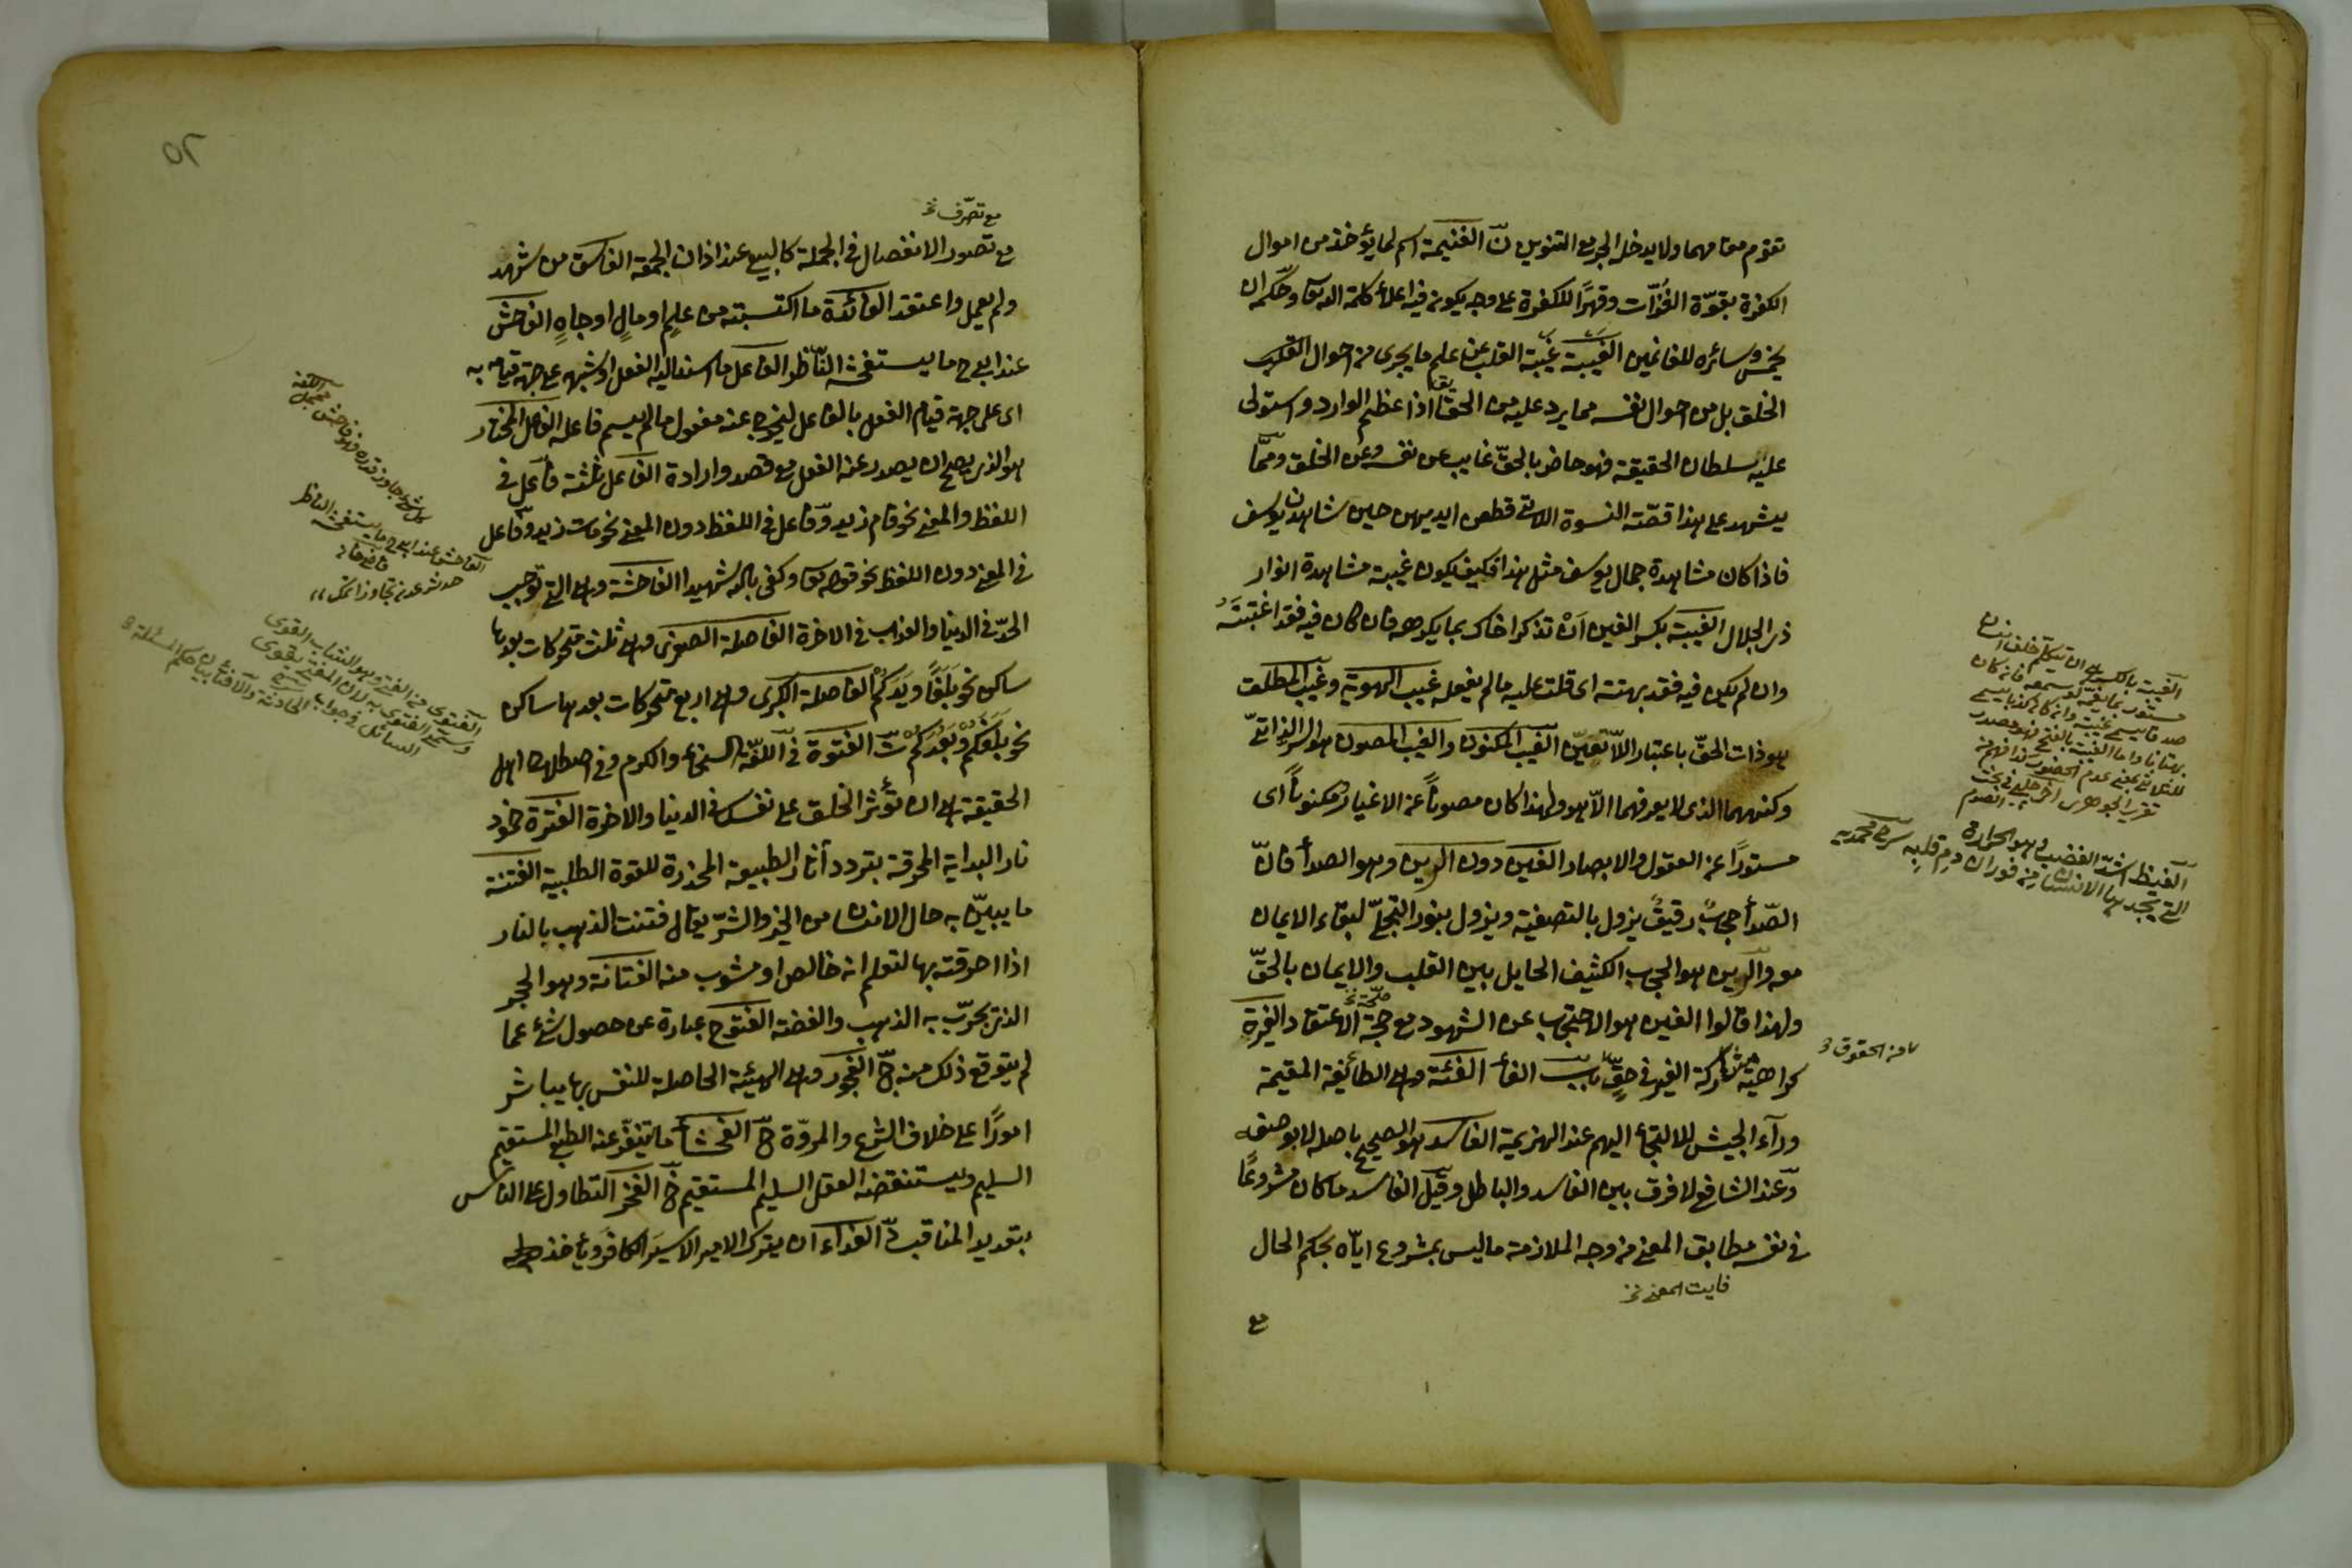 تقوم مقامهما ولا يدخله الجر مع التنوين نّ الغنيمة اسم لما يؤخذ من اموال
الكفرة بقوّة الغزات وقهرًا للكفرة على وجه يكون فيه اعلاء كلمة الله تعا وحكمه ان
يخمس وسائره للغانمين الغيبة غيبة القلب عن علم ما يجرى من احوال القلب
الخلق بل من احوال نفسه مما يرد عليه من الحق تعا اذا عظم الوارد واستولى
عليه سلطان الحقيقة فهو حاضر بالحقّ غايب عن نفسه وعن الخلق وممّا
يشهد على هذا قصّته النسوة اللاتى قطعن ايديهن حين شاهدن يوسف
فاذا كان مشاهدة جمال يوسف مثل هذا فكيف يكون غيبة مشاهدة انوار
ذى الجلال الغيبة بكسر الغين اَنْ تذكر اخاك بما يكرهه فان كان فيه فقد اغتبتَهُ
وان لم يكن فيه فقد بهتته اى قلت عليه ما لم يفعله غيب الهوية وغيب المطلق
هو ذات الحقّ باعتبار اللاّ تعيّن الغيب المكنون والغيب المصون هو السر الذاتىّ
وكنهه الذى لا يعرفه الاّ هو ولهذا كان مصونًا عن الاغيار ومكنونًا اى
مستورًا عن العقول والابصار الغين دون الرين وهو الصدأ فانّ
الصّدأ حجاب رقيق يزول بالتصفية ويزول بنور التجلّى لبقاء الايمان
معه والرين هو الحجاب الكثيف الحايل بين القلب والايمان بالحقّ
صحّة نخ
ولهذا قالوا الغين هو الاحتجاب عن الشهود مع صحّة الاعتقاد الغيرة
كراهية مشاركة الغير فى حقٍّ باب الفأ الفئة وهى الطائفة المقيمة
ورآء الجيش للالتجاء اليهم عند الهزيمة الفاسد هو الصحيح باصله لا بوصفه
وعند الشافعى لا فرق بين الفاسد والباطل وقيل الفاسد ما كان مشروعًا
فى نفسه مطابق المعنى من وجه الملازمة ما ليس بمشروع ايّاه بحكم الحال
فايت المعنى نخ
مع
الغيبة بالكسر هى ان يتكلم خلف انسان
مستور بما يغمّه لو سمعه فان كان
صدقا يسمى غيبة وان كان كذبا يسمى
بهتانا واما الغيبة بالفتح فهو مصدر
الغيظ اشدّ الغضب وهو الحرارة
التى يجدها الانسان من فوران دم قلبه
من الحقوق
٥٢
مع تصرّف نخ
مع تصور الانفصال فى الجملة كالبيع عند اذان الجمعة الفاسق من شهد
ولم يعمل واعتقد الفائدة ما اكتسبته من علمٍ او مالٍ او جاهٍ الفاحش
عند ابى ح ما يستفحشه النّاظر الفاعل ما اسند اليه الفعل او شبهه على جهة قيامه به
اى على جهة قيام الفعل بالفاعل ليخرج عنه مفعول ما لم يسم فاعله الفاعل المختار
هو الذى يصح ان يصدر عنه الفعل مع قصد وارادة الفاعل ثلثة فاعل فى
اللفظ والمعنى نحو قام زيد وفاعل فى اللفظ دون المعنى نحو مات زيد وفاعل
فى المعنى دون اللفظ نحو قوله تعا وكفى بالله شهيدا الفاحشة وهى التى توجب
الحدّ فى الدنيا والعذاب فى الاخرة الفاصلة الصغرى وهى ثلث متحركات بعدها
ساكن نحو بَلَغَا وَيَدَكُمْ الفاصلة الكبرى وهى اربع متحركات بعدها ساكن
نحو بَلَغَكُمْ وَيَعِدُكُمْ تّ الفتوة فى اللغة السخاء والكرم وفى اصطلاح اهل
الحقيقة هى ان تؤثر الخلق على نفسك فى الدنيا والاخرة الفترة خمود
نار البداية المحرقة بتردد آثار الطبيعة المخدرة للقوة الطلبية الفتنة
ما يبيّن به حال الانسان من الخير والشرّ يقال فتنت الذهب بالنار
اذا احرقته بها لتعلم انه خالص او مشوب منه الفتانة وهو الحجر
الذى يجرّب به الذهب والفضة الفتوح عبارة عن حصول شئ عما
لم يتوقع ذلك منه جّ الفجور وهى الهيئة الحاصلة للنفس بها يباشر
امورًا على خلاف الشرع والمروّة حّ الفحشأ ما ينفّر عنه الطبع المستقيم
السليم ويستنقضه العقل السليم المستقيم خّ الفخر التطاول على الناس
بتعديد المناقب دّ الفداء ان يترك الامير الاسيرَ الكافر ويأخذ
كل شئ جاوز قدره فهو فاحش
الفاحش عند ابى ح ما يستفحشه الناظر
الفتوى من الفتى وهو الشاب القوى
وسمى الفتوى به لان المفتى يقوى
السائل فى جواب الحادثة